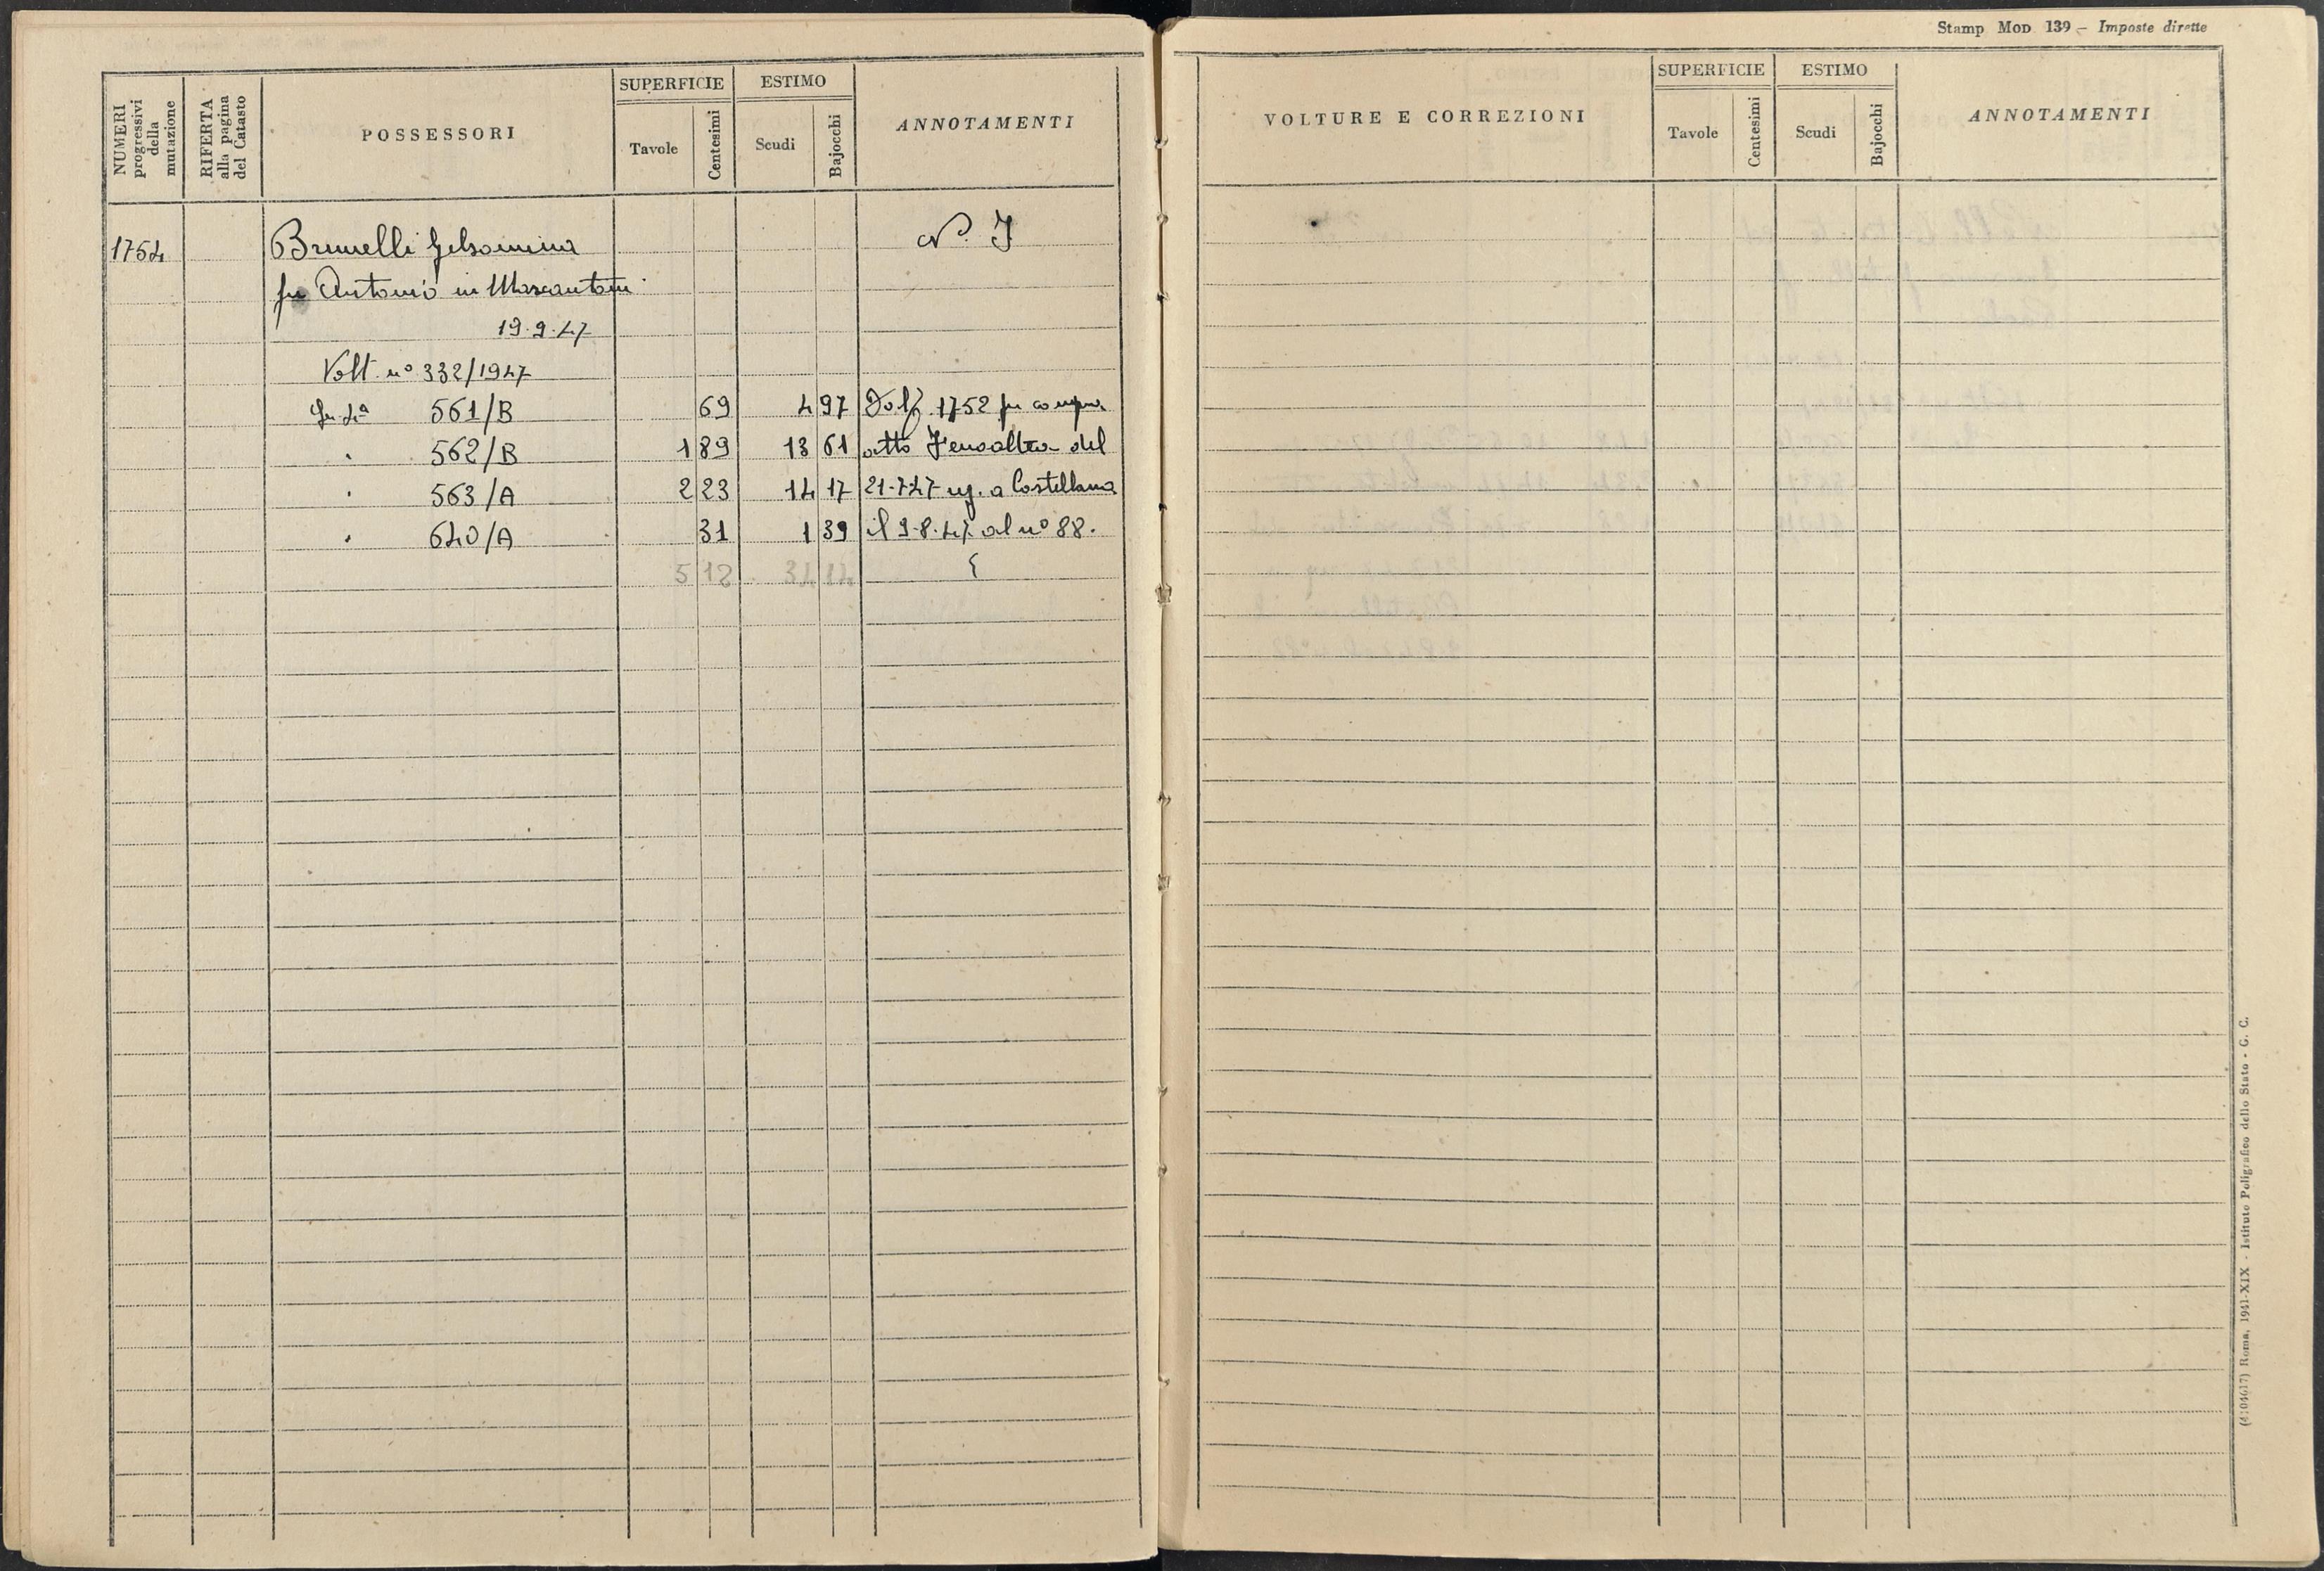 Stamp Mod 139 – Imposte dirette
NUMERI progressivi della mutazione
RIFERTA alla pagina del Catasto
POSSESSORI
SUPERFICIE
Tavole
Centesimi
ESTIMO
Scudi
Bajocchi
ANNOTAMENTI
1754 Brunelli Gelsomina N. I
fu Antonio in Mascantoni
19.9.47
Volt. nº 332/1947
561/B 69 4 97 Dalla 1752 per compra
" 562/B 1 89 13 61 atto Fenoaltea del
" 563/A 2 23 14 17 21-7-47 reg. a Castellana
" 640/A 31 1 39 il 9-8-47 al nº 88.
5 12 34 14
VOLTURE E CORREZIONI
SUPERFICIE
Tavole
Centesimi
ESTIMO
Scudi
Bajocchi
ANNOTAMENTI
(4104617) Roma, 1941-XIX - Istituto Poligrafico dello Stato - G. C.